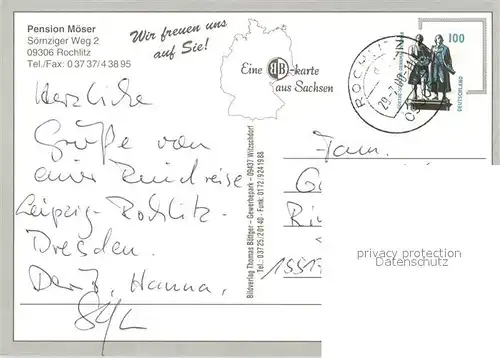 Pension Möser
Sörnziger Weg 2
09306 Rochlitz
Tel./Fax: 0 37 37/4 38 95
Wir freuen uns
auf Sie!
Eine BB-karte
aus Sachsen
ROCHLITZ
100
DEUTSCHLAND
Herzliche
Grüße von
einer Rundreise
Leipzig-Rochlitz-
Dresden.
Hanna,
Bildverlag Thomas Böttger – Gewerbepark – 09437 Witzschdorf
Tel.: 0 37 25 / 20 140 · Funk: 0172 / 9241988
Fam.
1551
privacy protection
Datenschutz